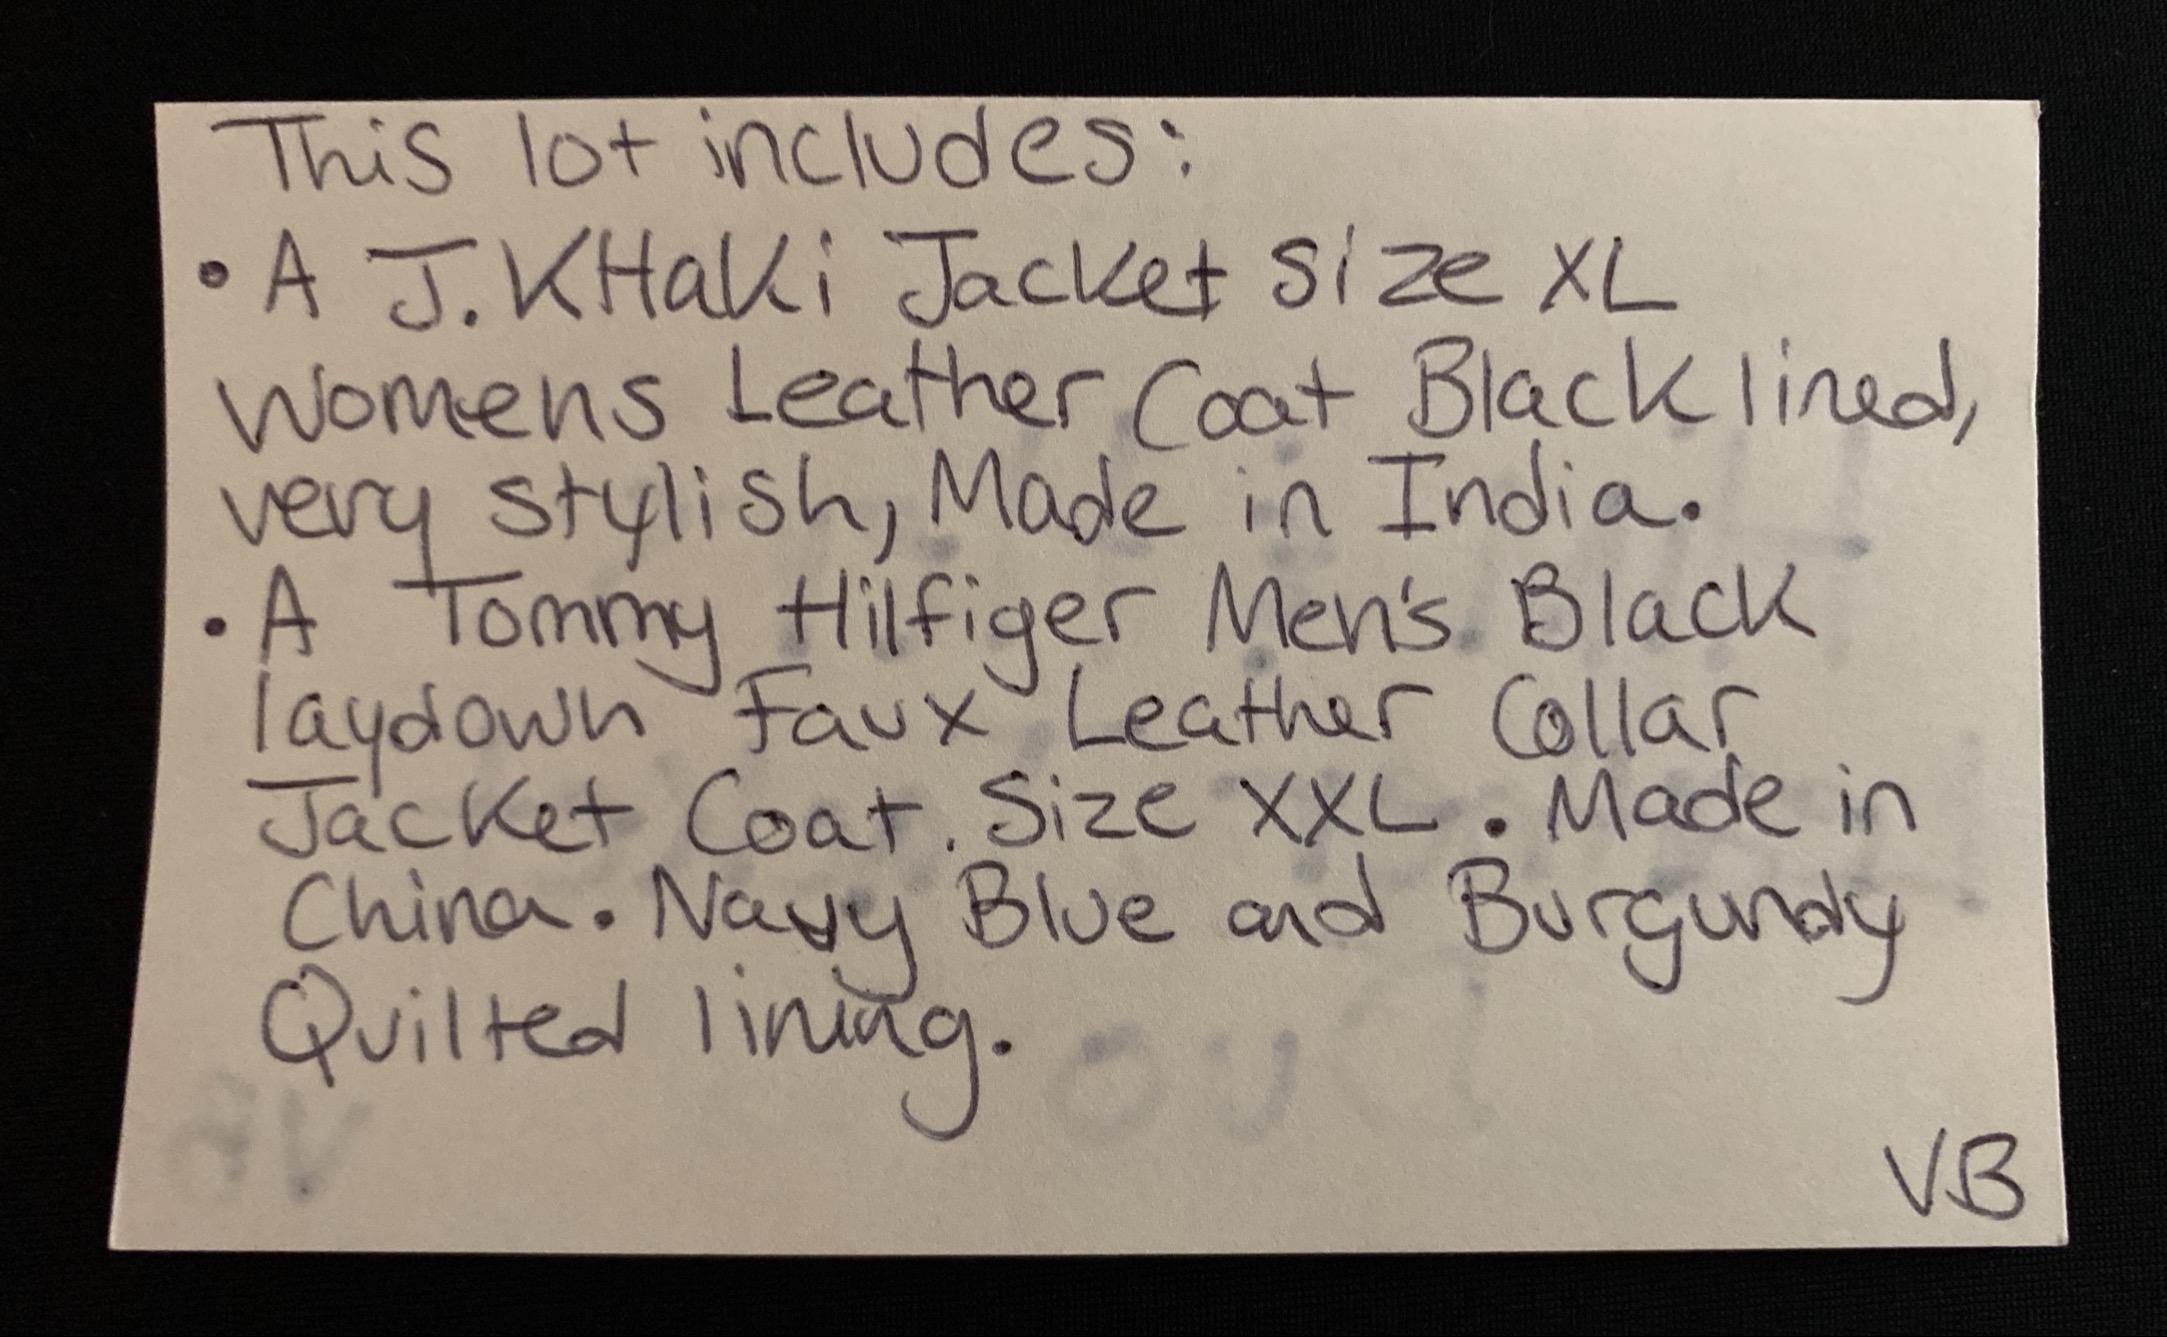 This lot includes:
• A J.KHaki Jacket size XL
womens Leather Coat Black lined,
very stylish, Made in India.
• A Tommy Hilfiger Men's Black
laydown Faux Leather Collar
Jacket Coat. Size XXL. Made in
China. Navy Blue and Burgundy
Quilted lining.
VB